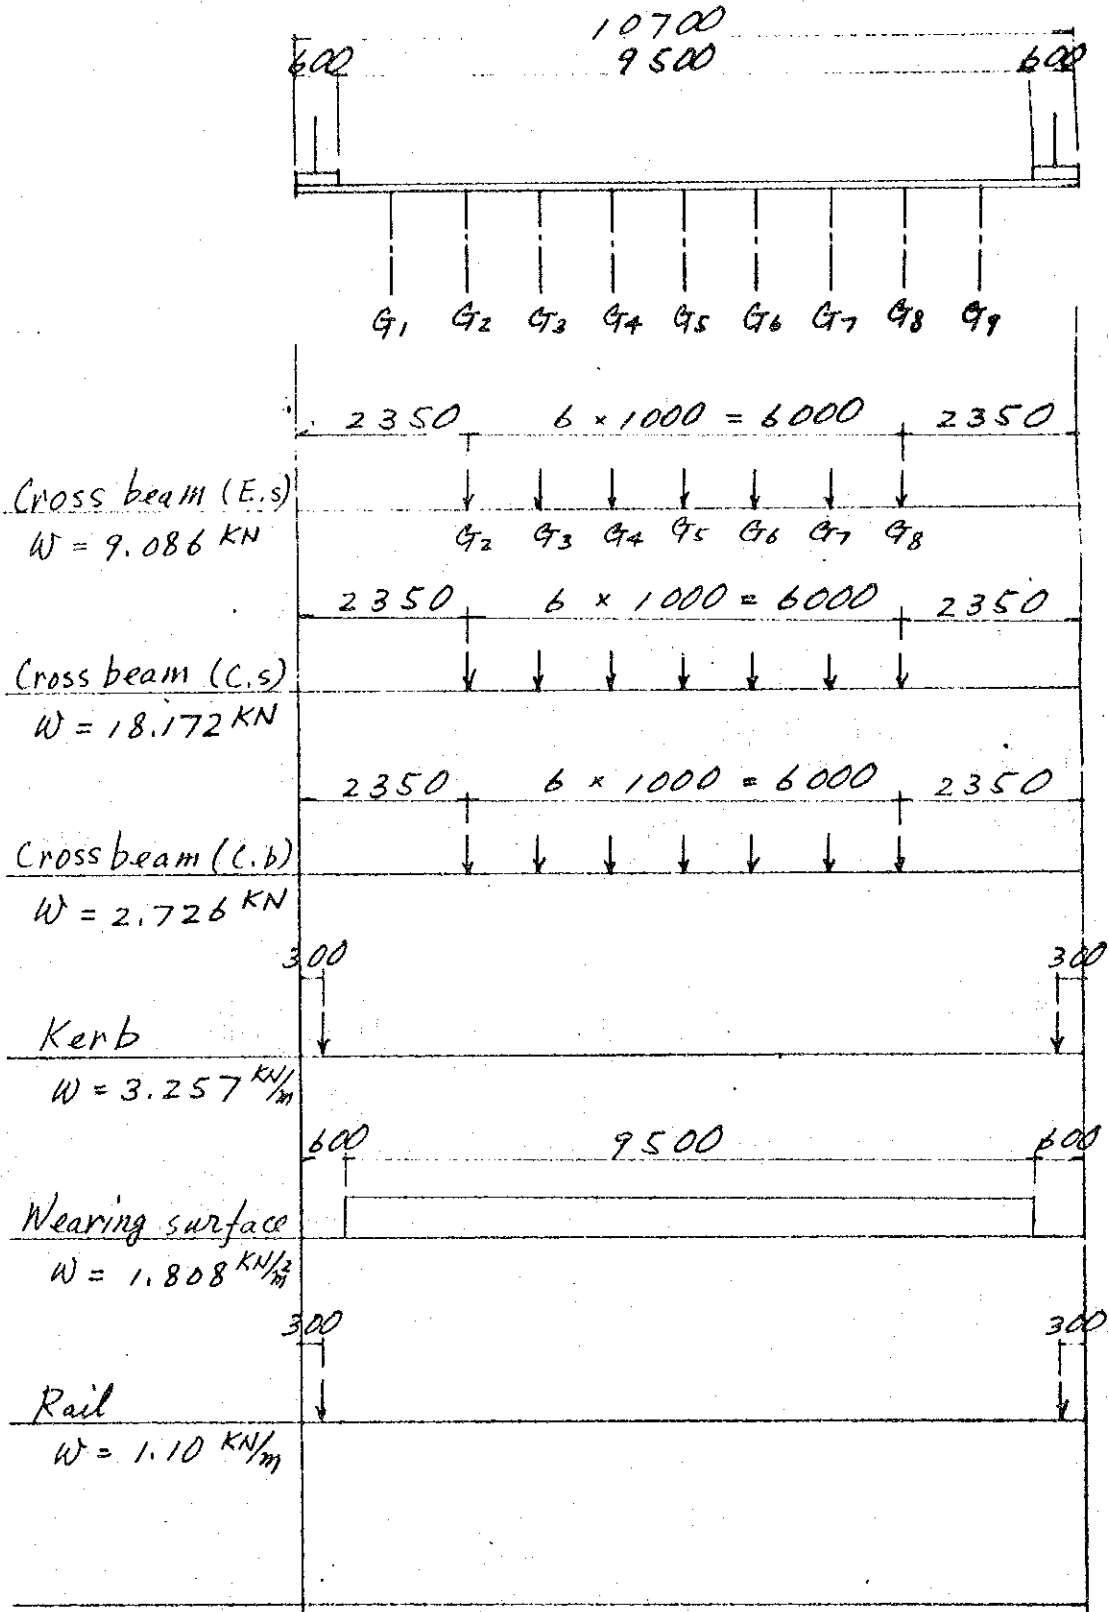 10700
600 9500 600
G1 G2 G3 G4 G5 G6 G7 G8 G9
2350 6 × 1000 = 6000 2350
Cross beam (E.s)
W = 9.086 KN
G2 G3 G4 G5 G6 G7 G8
2350 6 × 1000 = 6000 2350
Cross beam (C.s)
W = 18.172 KN
2350 6 × 1000 = 6000 2350
Cross beam (C.b)
W = 2.726 KN
300 300
Kerb
W = 3.257 KN/m
600 9500 600
Wearing surface
W = 1.808 KN/m2
300 300
Rail
W = 1.10 KN/m